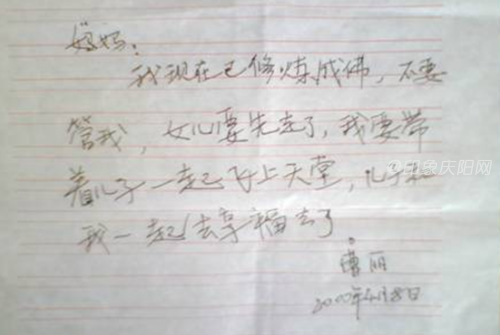 妈妈:
我现在已修炼成佛，不要
管我，女儿要先走了，我要带
着儿子一起飞上天堂，儿子和
我一起去享福去了。
曹丽
2000年4月8日
印象庆阳网